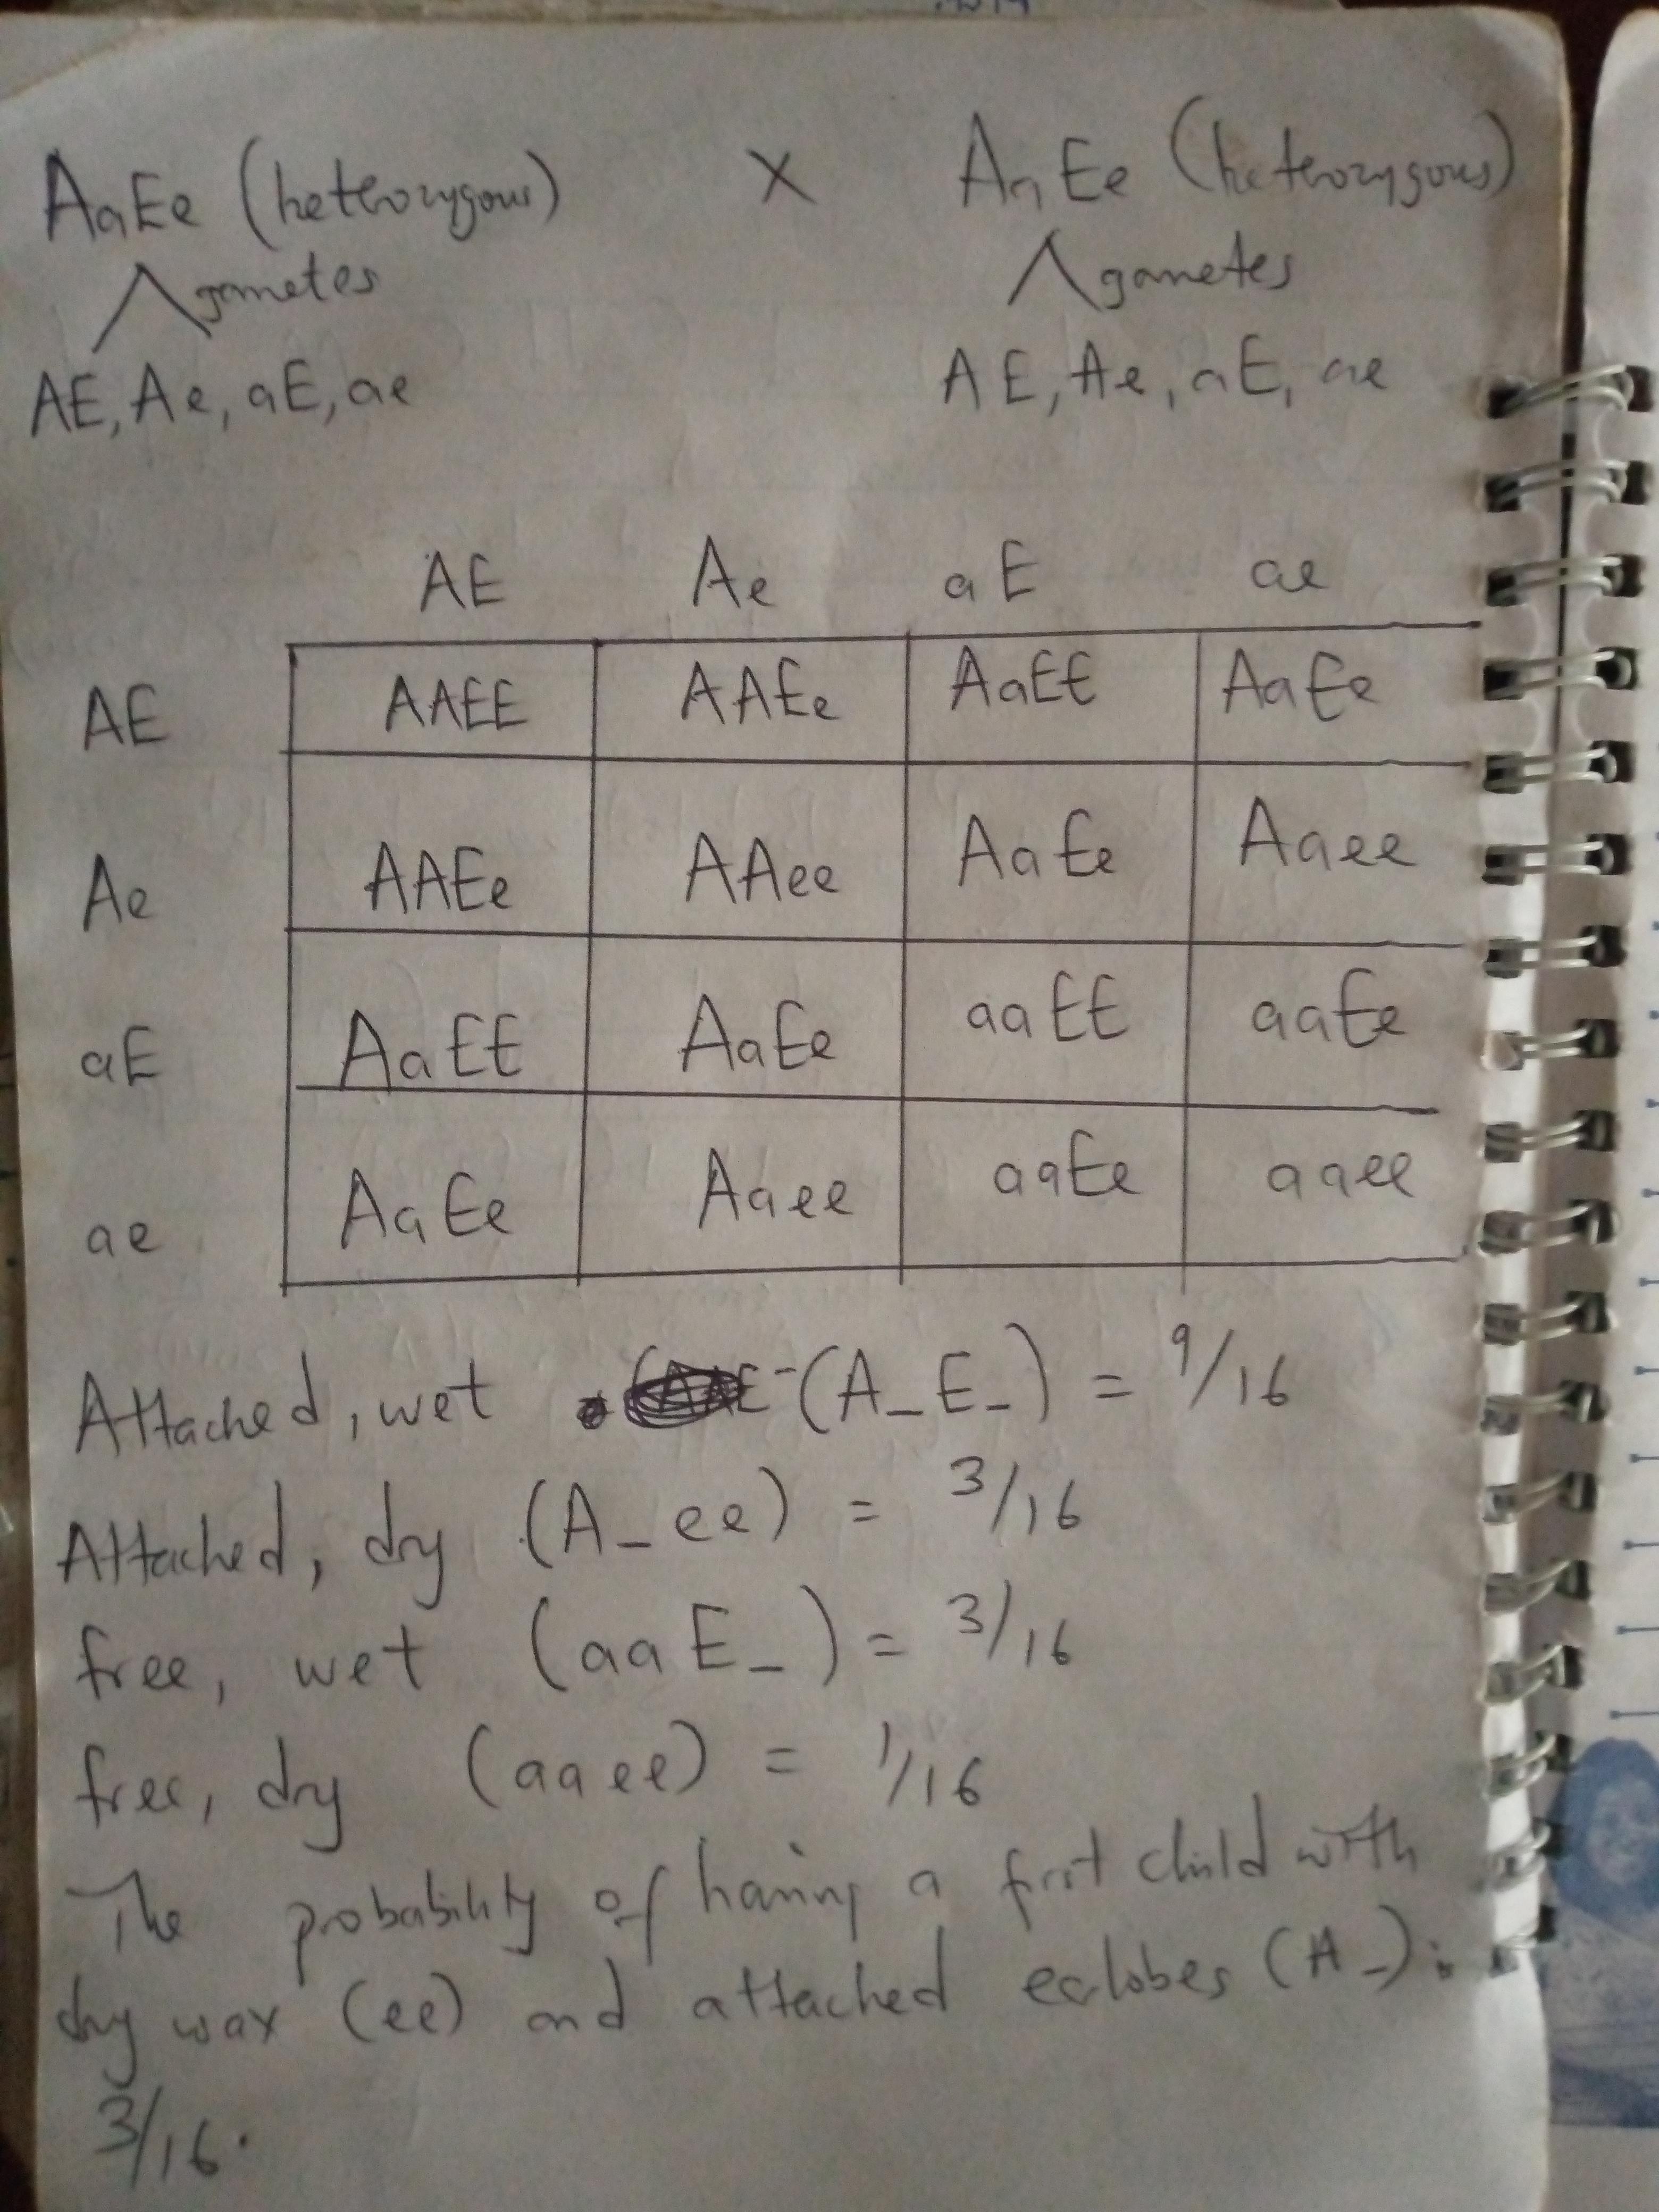 AaEe (heterozygous) X AaEe (heterozygous)
gametes gametes
AE, Ae, aE, ae AE, Ae, aE, ae
AE Ae aE ae
AE AAEE AAEe AaEE AaEe
Ae AAEe AAee AaEe Aaee
aE AaEE AaEe aaEE aaEe
ae AaEe Aaee aaEe aaee
Attached, wet (A_E_) = 9/16
Attached, dry (A_ee) = 3/16
free, wet (aaE_) = 3/16
free, dry (aaee) = 1/16
The probability of having a first child with
dry wax (ee) and attached eclobes (A_) is
3/16.